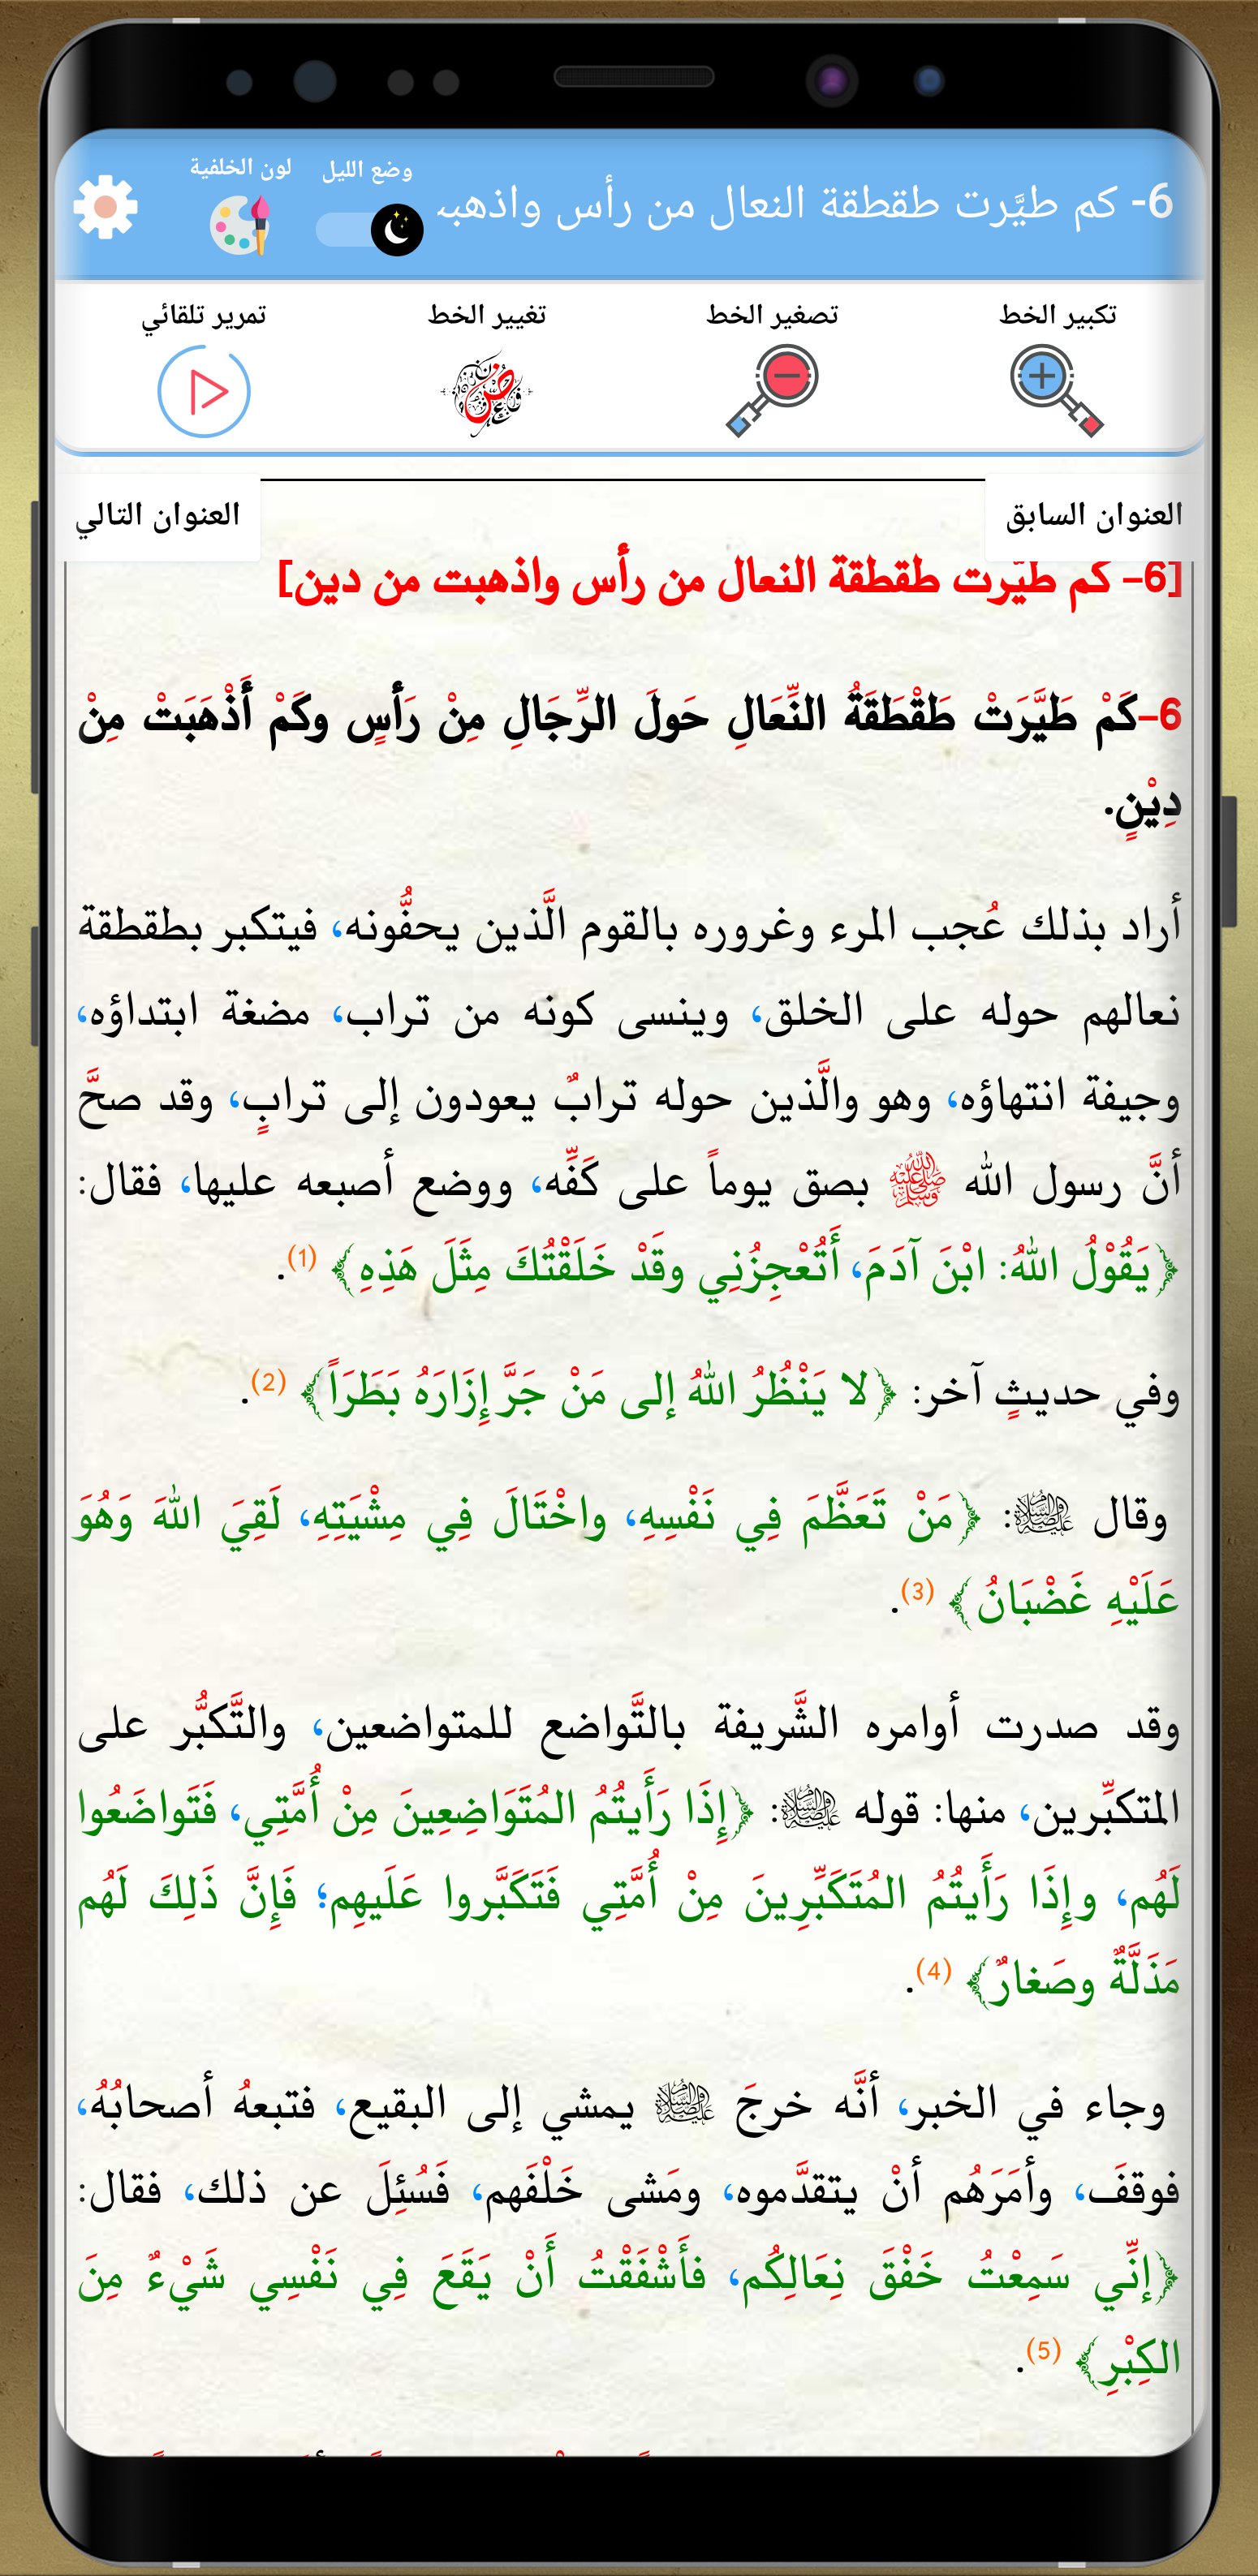 6- كم طيَّرت طقطقة النعال من رأس واذهبـ
وضع الليل
لون الخلفية
تكبير الخط
تصغير الخط
تغيير الخط
تمرير تلقائي
العنوان السابق
العنوان التالي
[6- كم طيَّرت طقطقة النعال من رأس واذهبت من دين]
6-كَمْ طَيَّرَتْ طَقْطَقَةُ النِّعَالِ حَولَ الرِّجَالِ مِنْ رَأسٍ وكَمْ أَذْهَبَتْ مِنْ
دِيْنٍ.
أراد بذلك عُجب المرء وغروره بالقوم الَّذين يحفُّونه، فيتكبر بطقطقة
نعالهم حوله على الخلق، وينسى كونه من تراب، مضغة ابتداؤه،
وجيفة انتهاؤه، وهو والَّذين حوله ترابٌ يعودون إلى ترابٍ، وقد صحَّ
أنَّ رسول الله ﷺ بصق يوماً على كَفِّه، ووضع أصبعه عليها، فقال:
﴿يَقُوْلُ اللهُ: ابْنَ آدَمَ، أَتُعْجِزُنِي وقَدْ خَلَقْتُكَ مِثَلَ هَذِهِ﴾ (1).
وفي حديثٍ آخر: ﴿لا يَنْظُرُ اللهُ إلى مَنْ جَرَّ إِزَارَهُ بَطَرَاً﴾ (2).
وقال عليه الصلاة والسلام: ﴿مَنْ تَعَظَّمَ فِي نَفْسِهِ، واخْتَالَ فِي مِشْيَتِهِ، لَقِيَ اللهَ وَهُوَ
عَلَيْهِ غَضْبَانُ﴾ (3).
وقد صدرت أوامره الشَّريفة بالتَّواضع للمتواضعين، والتَّكبُّر على
المتكبِّرين، منها: قوله عليه الصلاة والسلام: ﴿إِذَا رَأَيتُمُ المُتَوَاضِعِينَ مِنْ أُمَّتِي، فَتَواضَعُوا
لَهُم، وإِذَا رَأَيتُمُ المُتَكَبِّرِينَ مِنْ أُمَّتِي فَتَكَبَّروا عَلَيهِم؛ فَإِنَّ ذَلِكَ لَهُم
مَذَلَّةٌ وصَغارٌ﴾ (4).
وجاء في الخبر، أنَّه خرجَ عليه الصلاة والسلام يمشي إلى البقيع، فتبعهُ أصحابُهُ،
فوقفَ، وأمَرَهُم أنْ يتقدَّموه، ومَشى خَلْفَهم، فَسُئِلَ عن ذلك، فقال:
﴿إنِّي سَمِعْتُ خَفْقَ نِعَالِكُم، فأَشْفَقْتُ أَنْ يَقَعَ فِي نَفْسِي شَيْءٌ مِنَ
الكِبْرِ﴾ (5).